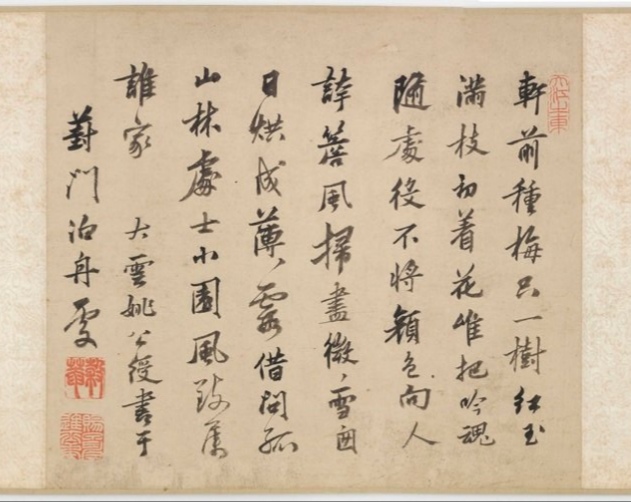 軒前種梅只一樹紅玉
滿枝初着花唯把吟魂
隨處役不將顏色向人
誇簷風掃盡微〻雪囱
日烘成薄〻霞借問孤
山林處士小園風致屬
誰家 大雲姚公綬書于
葑門泊舟處